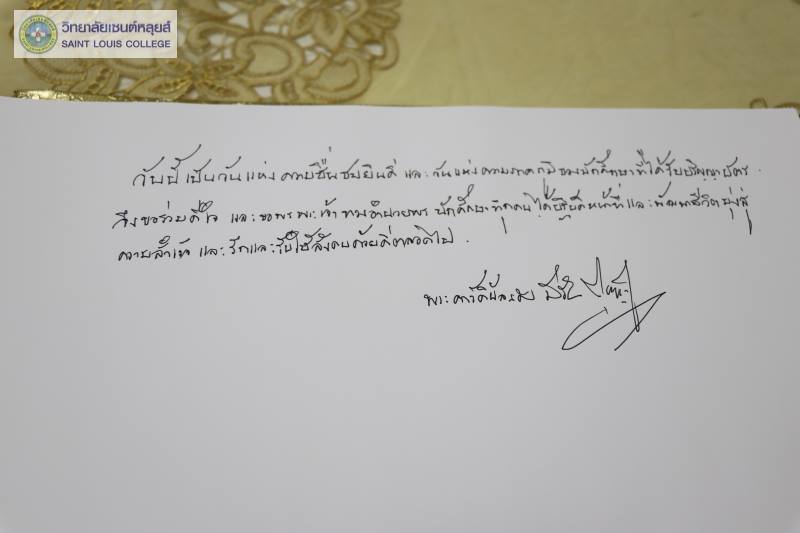 วิทยาลัยเซนต์หลุยส์
SAINT LOUIS COLLEGE
วันนี้เป็นวันแห่งความชื่นชมยินดี และวันแห่งความภาคภูมิของนักศึกษาที่ได้รับปริญญาบัตร
จึงขอร่วมดีใจ และขอพรพระเจ้า อำนวยพร นักศึกษาทุกคนได้ หน้าที่และพัฒนาชีวิตมุ่งสู่
ความสำเร็จ และรักและรับใช้สังคมด้วยดีตลอดไป
พระคาร์ดินัล